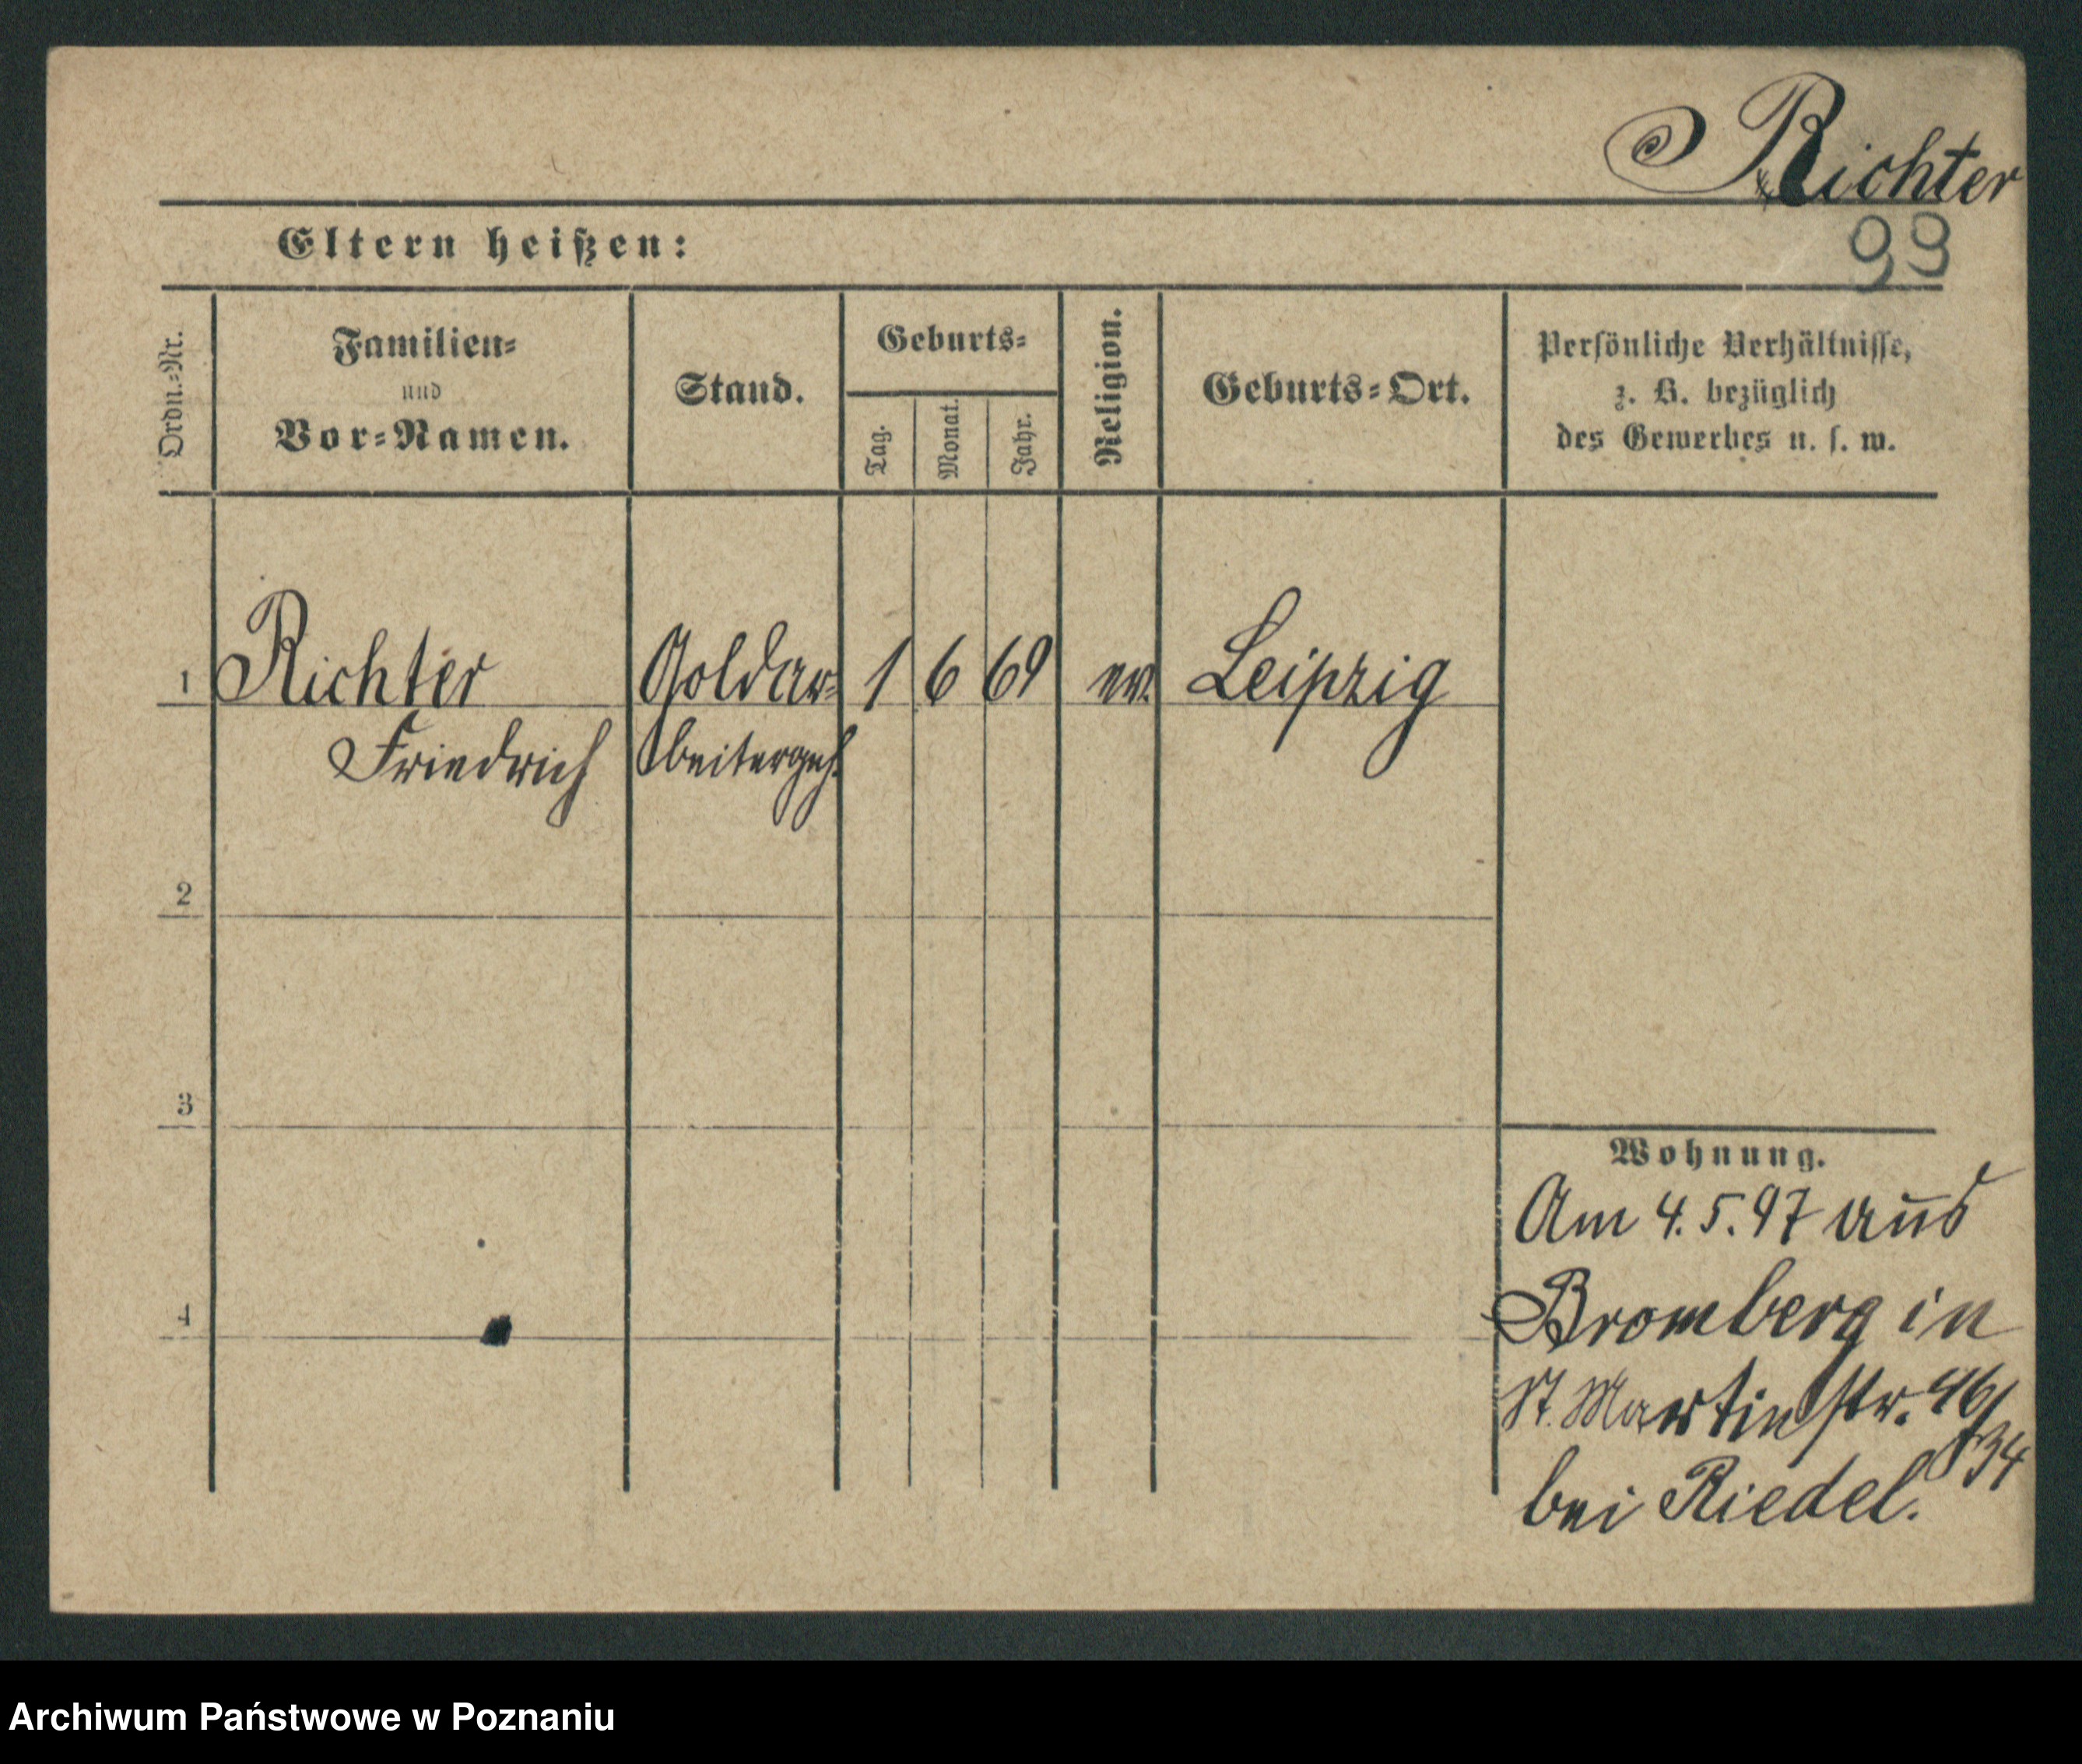 Richter
99
Eltern heißen:
Ordn.-Nr.
Familien-
und
Vor-Namen.
Stand.
Geburts-
Tag.
Monat.
Jahr.
Religion.
Geburts-Ort.
Persönliche Verhältnisse,
z. B. bezüglich
des Gewerbes u. s. w.
1 Richter Goldar- 1 6 69 ev. Leipzig
Friedrich beitergeh.
2
3
4
Wohnung.
Am 4.5.97 aus
Bromberg in
St. Martinstr. 46/
34
bei Riedel.
Archiwum Państwowe w Poznaniu